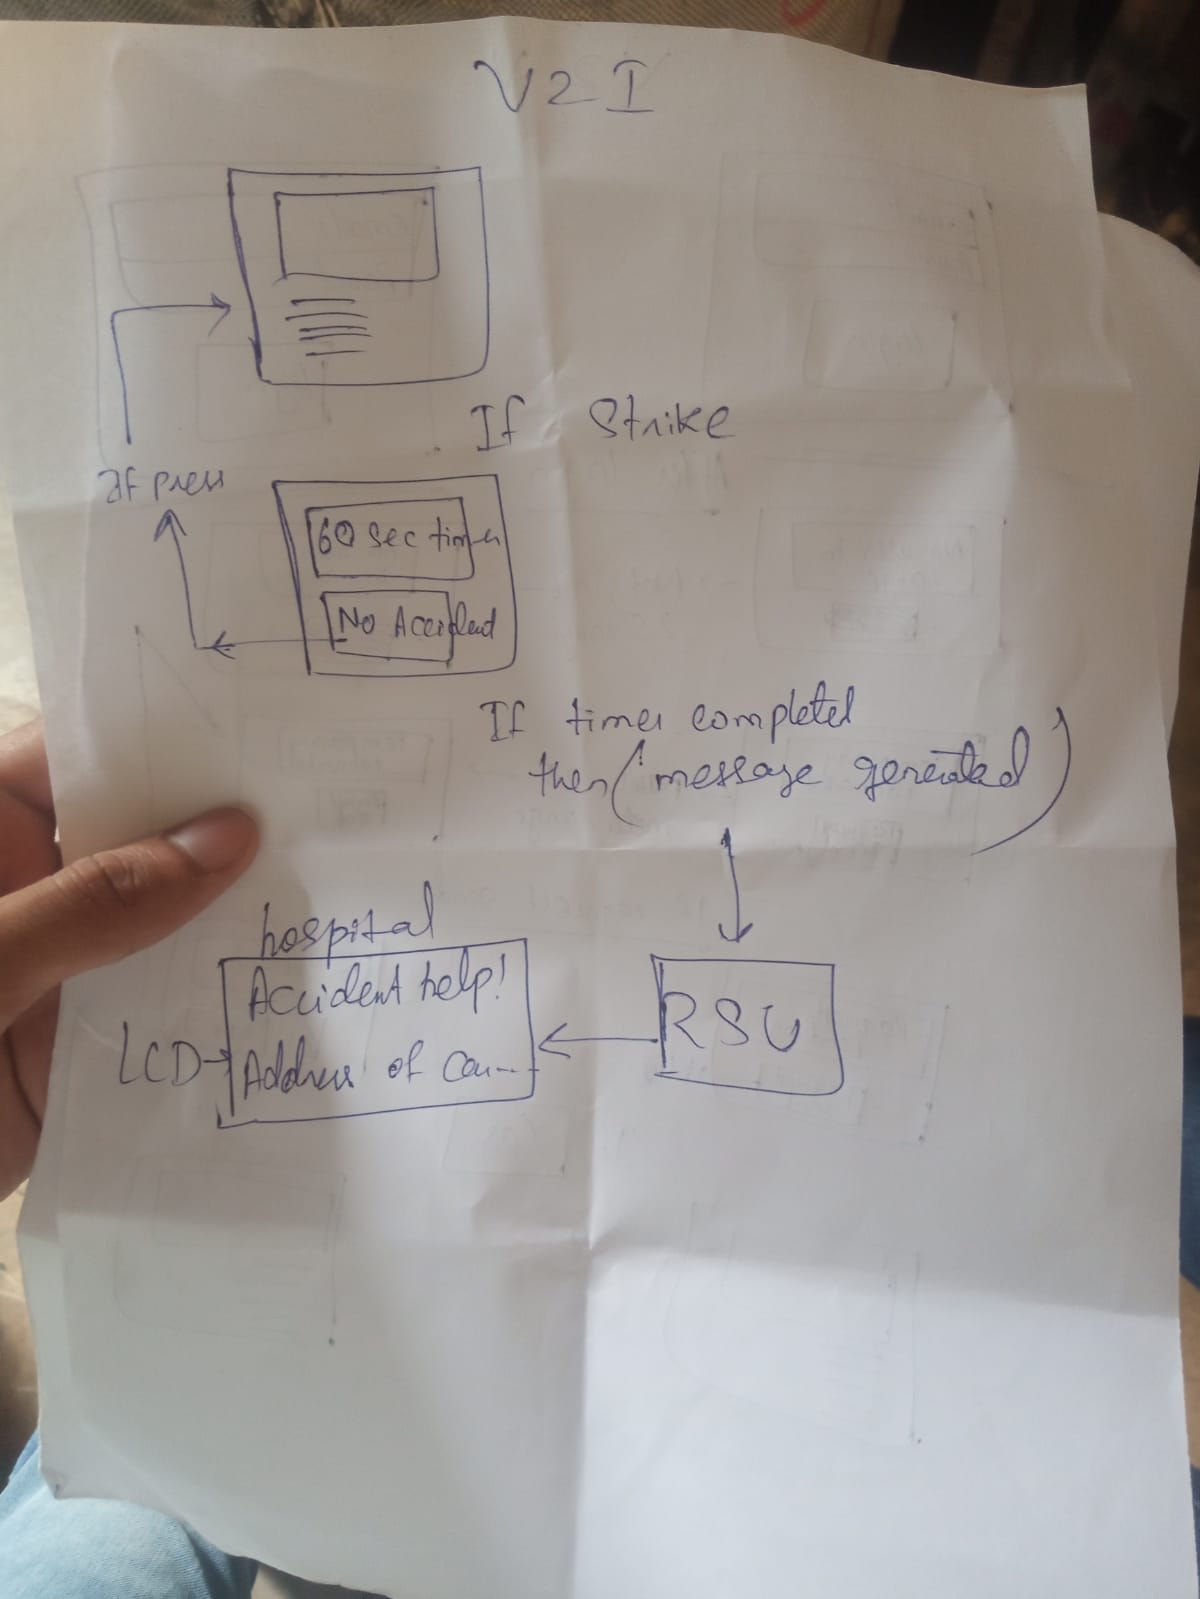 V2I
If Strike
If press
60 sec timer
No Accident
If timer completed
then (message generated)
hospital
Accident help!
LCD
Address of Car---
RSU